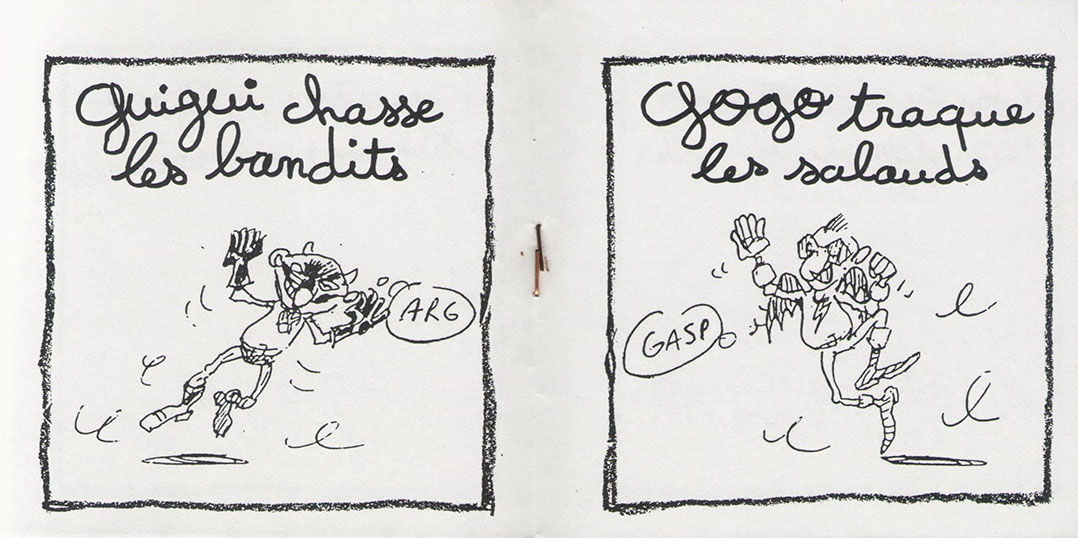 Guigui chasse
les bandits
ARG
Gogo traque
les salauds
GASP